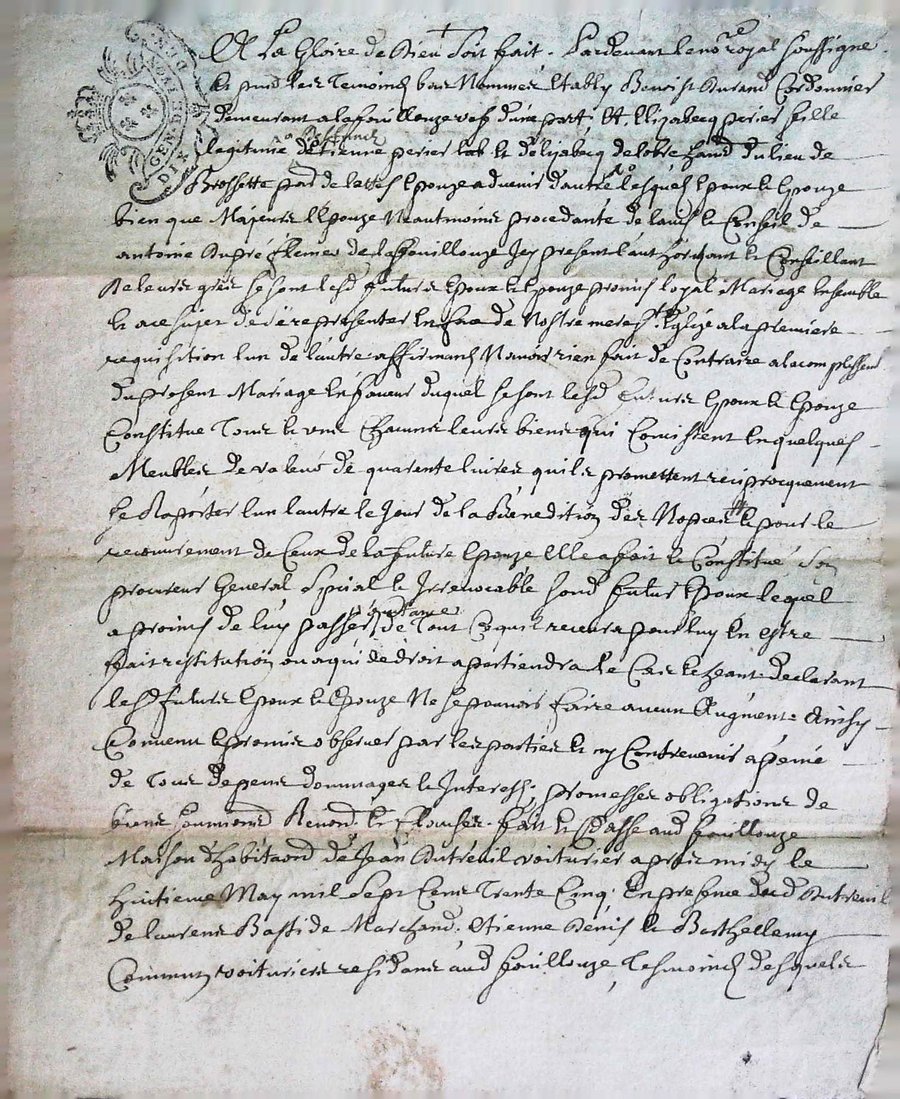 A La Gloire de Dieu Soit fait. Pardevant le no.re royal soussigné
et pnd les Temoins bas Nommés, Etably Benoist Durand Cordonnier
demeurant a lafouillouze dune part, Et Elizabeeq perier fille
legitime de Etienne perier et d'elizabeeq du lieu de
Brossette par de lattes Epouze advenir d'autre, Lesquels Epoux et Epouze
bien que Majeurs l'Epouze Neautmoins procedante de lavis et Conseil de
antoine Dupré de lafouillouze Icy present l'authorizant et Conseillant
De leurs grés se sont lesd futurs Epoux et Epouze promis loyal Mariage Ensemble
Et a ce sujet de se representer En face de Nostre mere s.te Eglize a la premiere
requisition l'un de l'autre affirmants N'avoir rien fait de Contraire a lacomplissem.t
du present Mariage En faveur duquel se sont lesd futurs Epoux et Epouze
Constitue Tous et uns Chacuns leurs biens qui Concistent En quelques
Meubles de valeur de quarente livres qu'ils promettent reciprocquement
se Raporter l'un l'autre le Jour de la Benedition des Nopces Et pour le
recouvrement de Ceux de la future Epouze Elle a fait et Constitué son
procureur General Special et Irrevocable sond futur Epoux lequel
a promis de luy passer quittance de Tout Ce quil recevra pour luy En estre
fait restitution ou a qui de droit apartiendra le Cas Echeant. declarant
lesd futurs Epoux et Epouze Ne se pouvoir faire aucun Augment. Ainsy
Convenu et promis observer par les parties et ny Contrevenir a peine
de Tous depens dommages et Interests. promesses obligations de
biens soumions Renond. et Clauses. fait et Passé aud fouillouze
Maison d'habitaond de Jean Dutreuil voiturier apres midy le
huitieme May mil Sept Cens Trente Cinq. En presence dud Dutreuil
de laurens Bastide Marchand, Etienne Denis et Barthellemy
voituriers residans aud fouillouze, Tesmoins desquels
GEN DE LION
DIX DEN